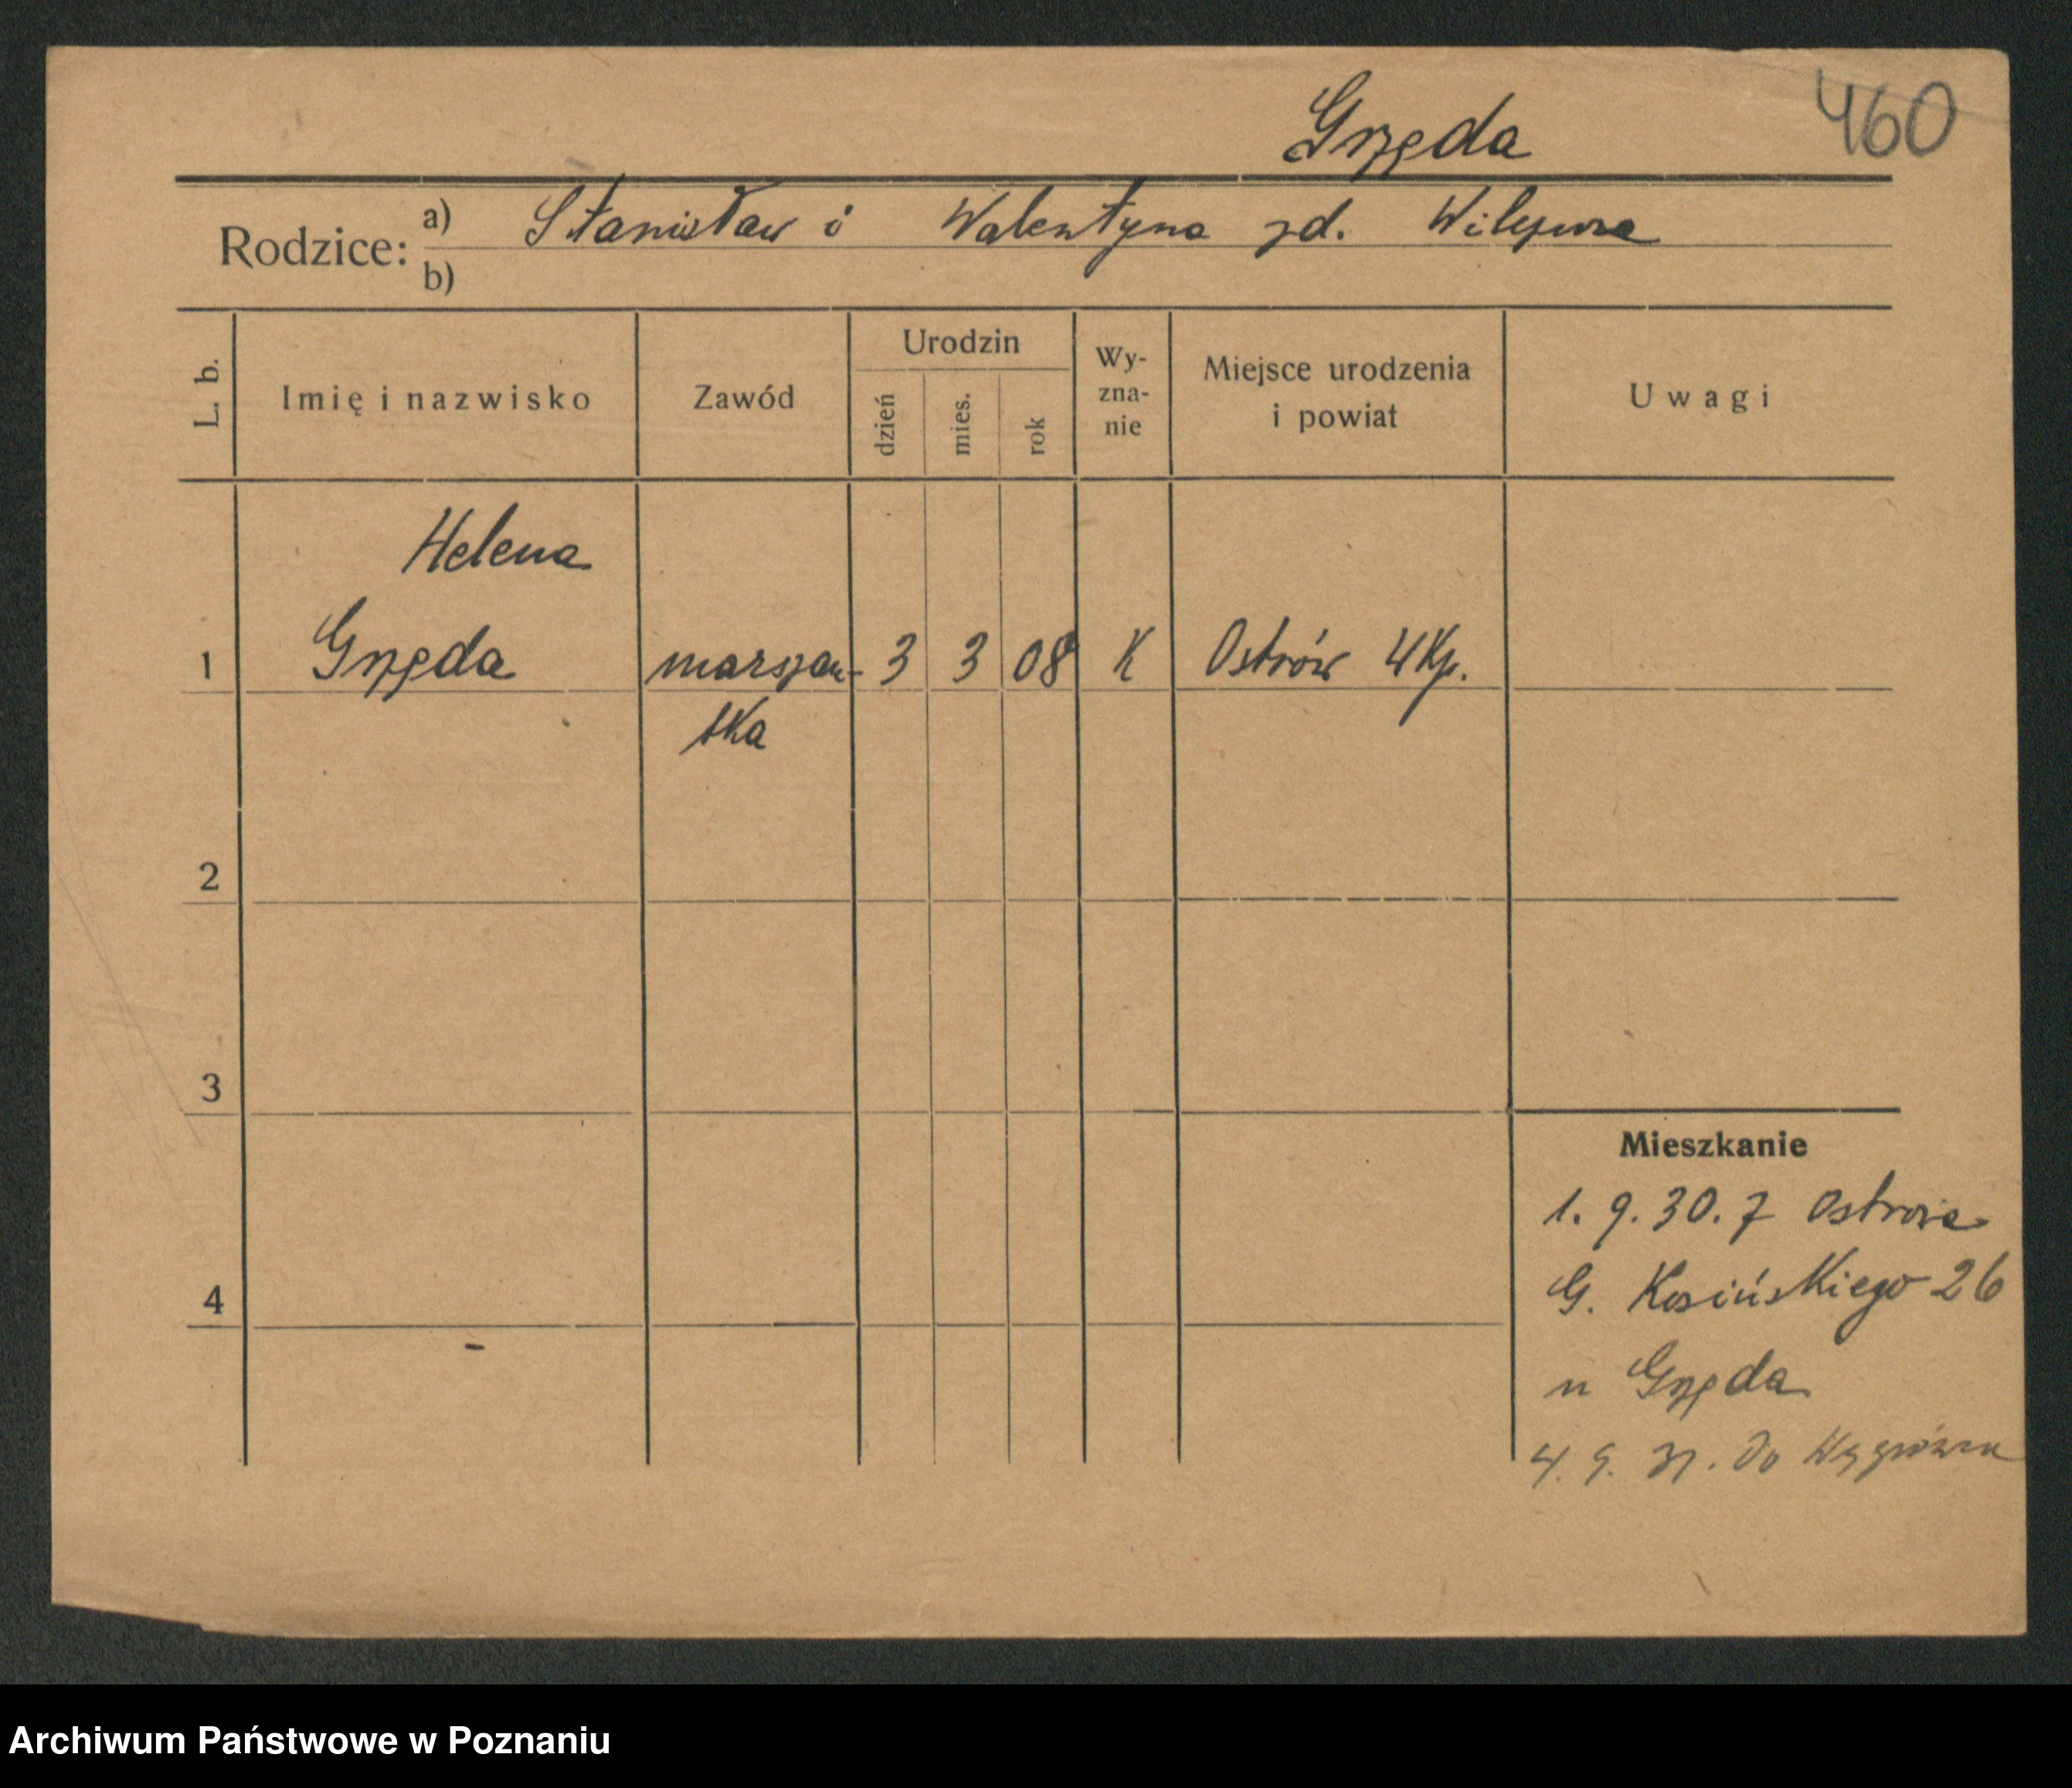 460
Grzęda
Rodzice: a) Stanisław i Walentyna zd.
b)
L. b. Imię i nazwisko Zawód Urodzin dzień mies. rok Wy-zna-nie Miejsce urodzenia i powiat Uwagi
Helena
1 Grzęda marszan- 3 3 08 K Ostrów Wlkp.
tka
2
3
Mieszkanie
1. 9. 30. z Ostrowa
G. Kosińskiego 26
4
u Grzęda
4. 9. 31. do Wągrówca
Archiwum Państwowe w Poznaniu